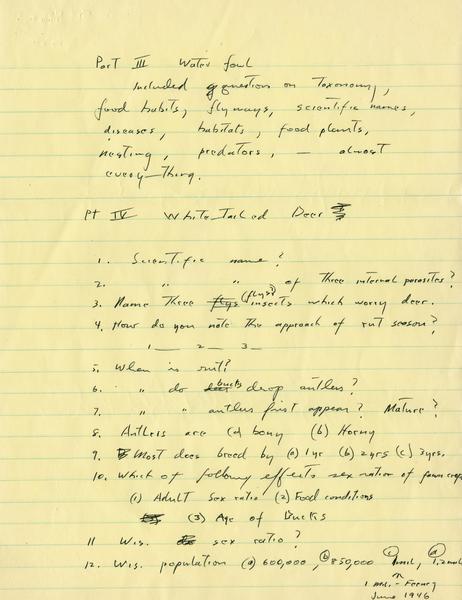 Part III Water fowl
Included questions on Taxonomy,
food habits, flyways, scientific names,
diseases, habitats, food plants,
nesting, predators, — almost
every-thing.
Pt IV White-Tailed Deer
1. Scientific name?
2. " " of Three internal parasites?
3. Name Three flys (flys?) insects which worry deer.
4. How do you note The approach of rut season?
1 — 2 — 3 —
5. When is rut?
6. " do bucks drop antlers?
7. " " antlers first appear? Mature?
8. Antlers are (a) bony (b) Horny
9. Most does breed by (a) 1yr (b) 2yrs (c) 3yrs.
10. Which of following effects sex ration of fawn crop
(1) Adult sex ratio (2) Food conditions
(3) Age of Bucks
11 Wis. sex ratio?
12. Wis. population (a) 600,000, (b) 850,000 (c) 1mil, (d) 1.2mil
1 mil. - Feeney
June 1946